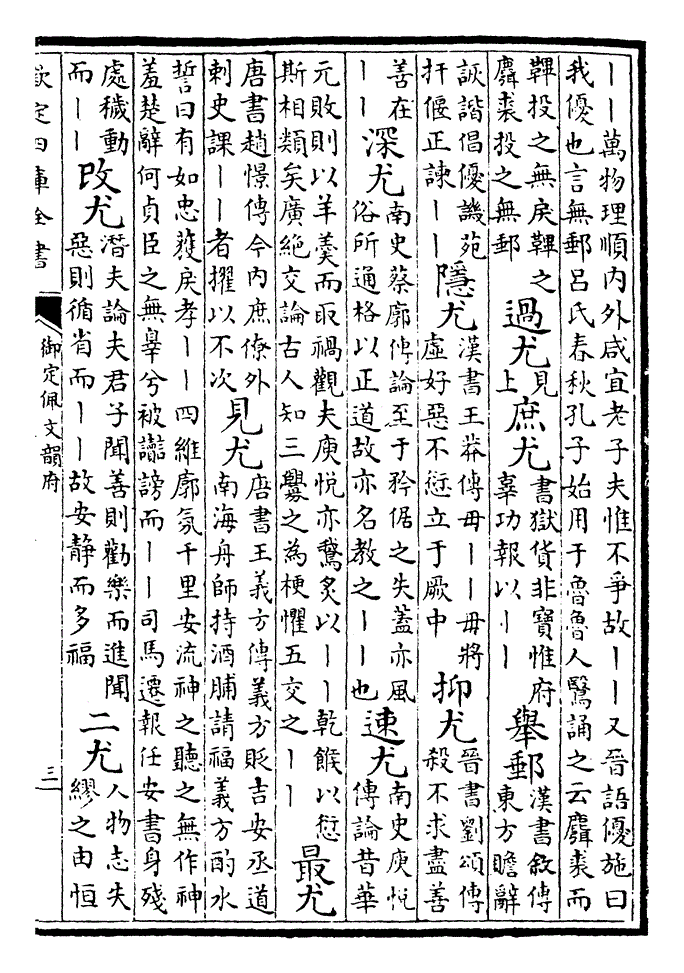 丨丨萬物理順內外咸宜老子夫惟不爭故丨丨又晉語優施曰
我優也言無郵呂氏春秋孔子始用于魯魯人鷖誦之云麛裘而
鞸投之無戾鞸之
麛裘投之無郵
過尤
見
上
庶尤
書獄貨非寶惟府
辜功報以丨丨
舉郵
漢書敘傳
東方贍辭
詼諧倡優譏苑
扞偃正諫丨丨
隱尤
漢書王莽傳毋丨丨毋將
虛好惡不愆立于厥中
抑尤
晉書劉頌傳
殺不求盡善
善在
丨丨
深尤
南史蔡廓傳論至于矜倨之失蓋亦風
俗所通格以正道故亦名教之丨丨也
速尤
南史庾悅
傳論昔華
元敗則以羊羹而取禍觀夫庾悅亦鵞炙以丨丨乾餱以愆
斯相類矣廣絕交論古人知三釁之為梗懼五交之丨丨
最尤
唐書趙憬傳今內庶僚外
刺史課丨丨者擢以不次
見尤
唐書王義方傳義方貶吉安丞道
南海舟師持酒脯請福義方酌水
誓曰有如忠獲戾孝丨丨四維廓氛千里安流神之聽之無作神
羞楚辭何貞臣之無辠兮被讟謗而丨丨司馬遷報任安書身殘
處穢動
而丨丨
改尤
潛夫論夫君子聞善則勸樂而進聞
惡則循省而丨丨故安靜而多福
二尤
人物志失
繆之由恒
欽定四庫全書
御定佩文韻府
三